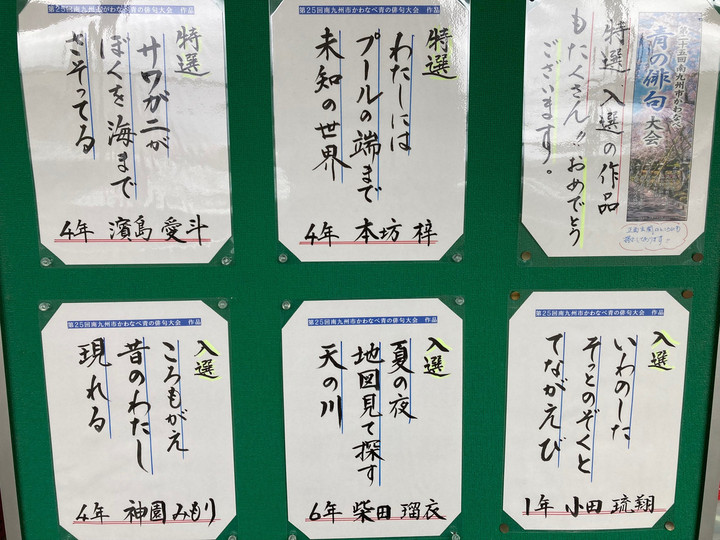 第二十五回南九州市かわなべ
青の俳句大会
特選 入選の作品
もたくさん!!おめでとう
ございます。
第25回南九州市かわなべ青の俳句大会 作品
特選
わたしには
プールの端まで
未知の世界
4年 本坊 梓
第25回南九州市かわなべ青の俳句大会 作品
特選
サワガニが
ぼくを海まで
さそってる
4年 濱島 愛斗
第25回南九州市かわなべ青の俳句大会 作品
入選
いわのした
そっとのぞくと
てながえび
1年 小田 琉翔
第25回南九州市かわなべ青の俳句大会 作品
入選
夏の夜
地図見て探す
天の川
6年 柴田 瑠衣
第25回南九州市かわなべ青の俳句大会 作品
入選
ころもがえ
昔のわたし
現れる
4年 神園 みもり